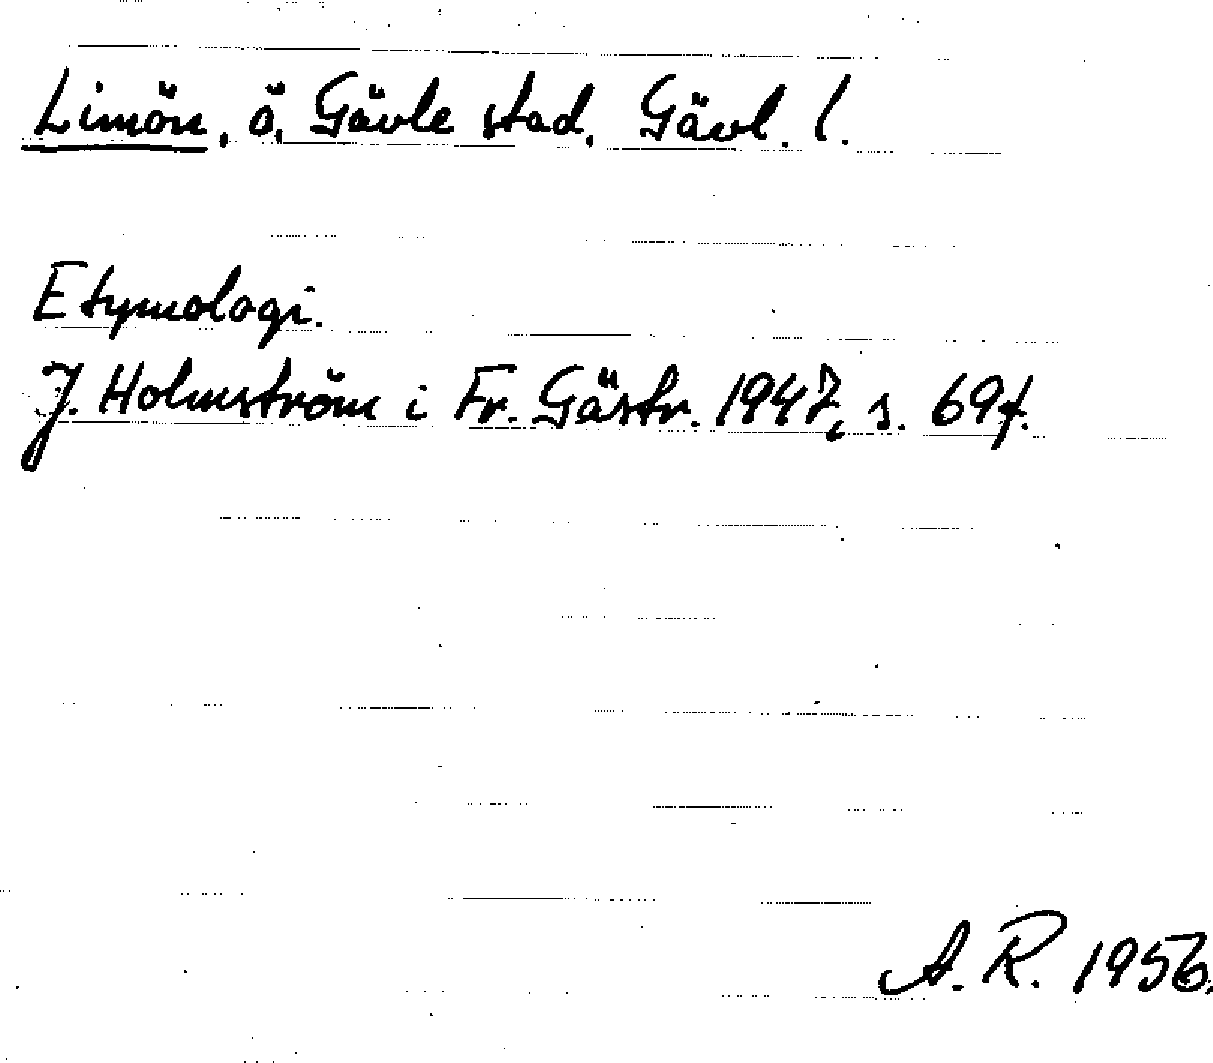 Limön, ö, Gävle stad, Gävl. l.
Etymologi.
J. Holmström i Fr. Gästr. 1947, s. 69f.
A. R. 1956.